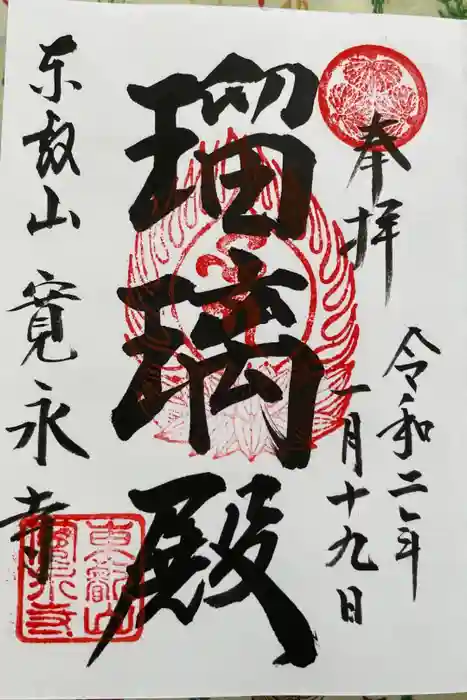 奉拝
令和二年
一月十九日
瑠璃殿
東叡山 寛永寺
東叡山
寛永寺